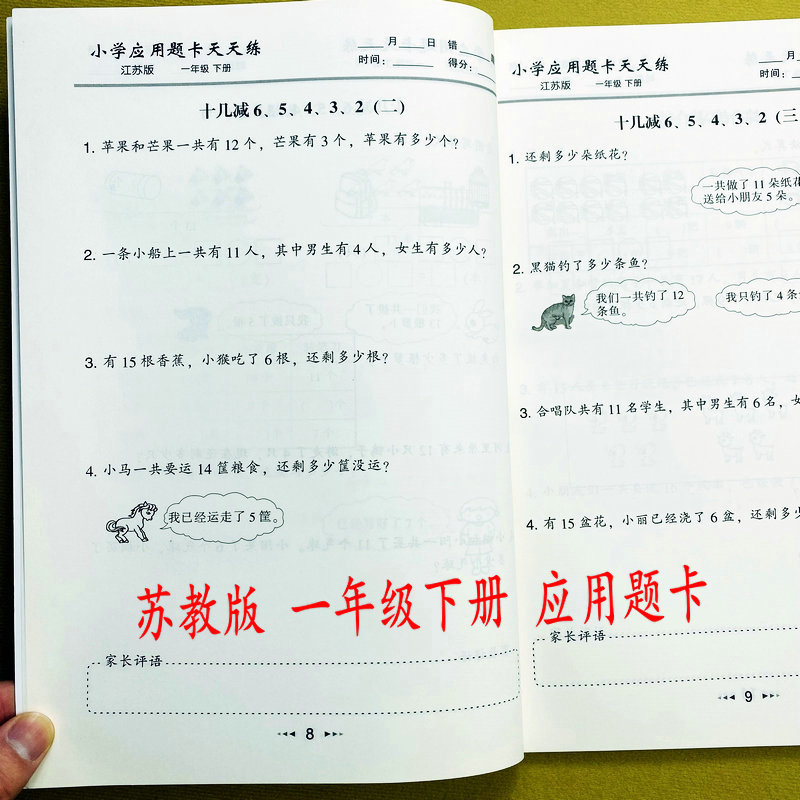 小学应用题卡天天练
江苏版 一年级 下册
____月____日 错
时间：______ 得分：
十几减 6、5、4、3、2（二）
1. 苹果和芒果一共有 12 个，芒果有 3 个，苹果有多少个？
2. 一条小船上一共有 11 人，其中男生有 4 人，女生有多少人？
3. 有 15 根香蕉，小猴吃了 6 根，还剩多少根？
4. 小马一共要运 14 筐粮食，还剩多少筐没运？
我已经运走了 5 筐。
家长评语
8
小学应用题卡天天练
江苏版 一年级 下册
____月
时间：
十几减 6、5、4、3、2（三
1. 还剩多少朵纸花？
一共做了 11 朵纸花
送给小朋友 5 朵。
2. 黑猫钓了多少条鱼？
我们一共钓了 12
条鱼。
我只钓了 4 条
3. 合唱队共有 11 名学生，其中男生有 6 名，女
4. 有 15 盆花，小丽已经浇了 6 盆，还剩多少
家长评语
9
苏教版 一年级下册 应用题卡